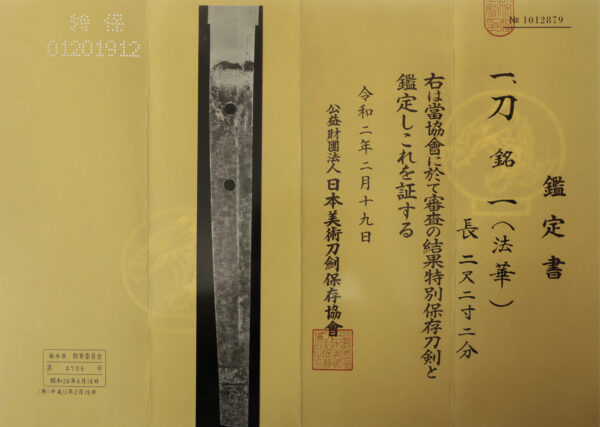 № 1012879
鑑定書
一、刀 銘 一(法華)
長 二尺二寸二分
右は當協會に於て審査の結果特別保存刀剣と
鑑定しこれを証する
令和二年二月十九日
公益財團法人 日本美術刀劍保存協會
特 保
01201912
栃木県 教育委員会
第 4706 号
昭和26年6月18日
(再)平成14年2月18日